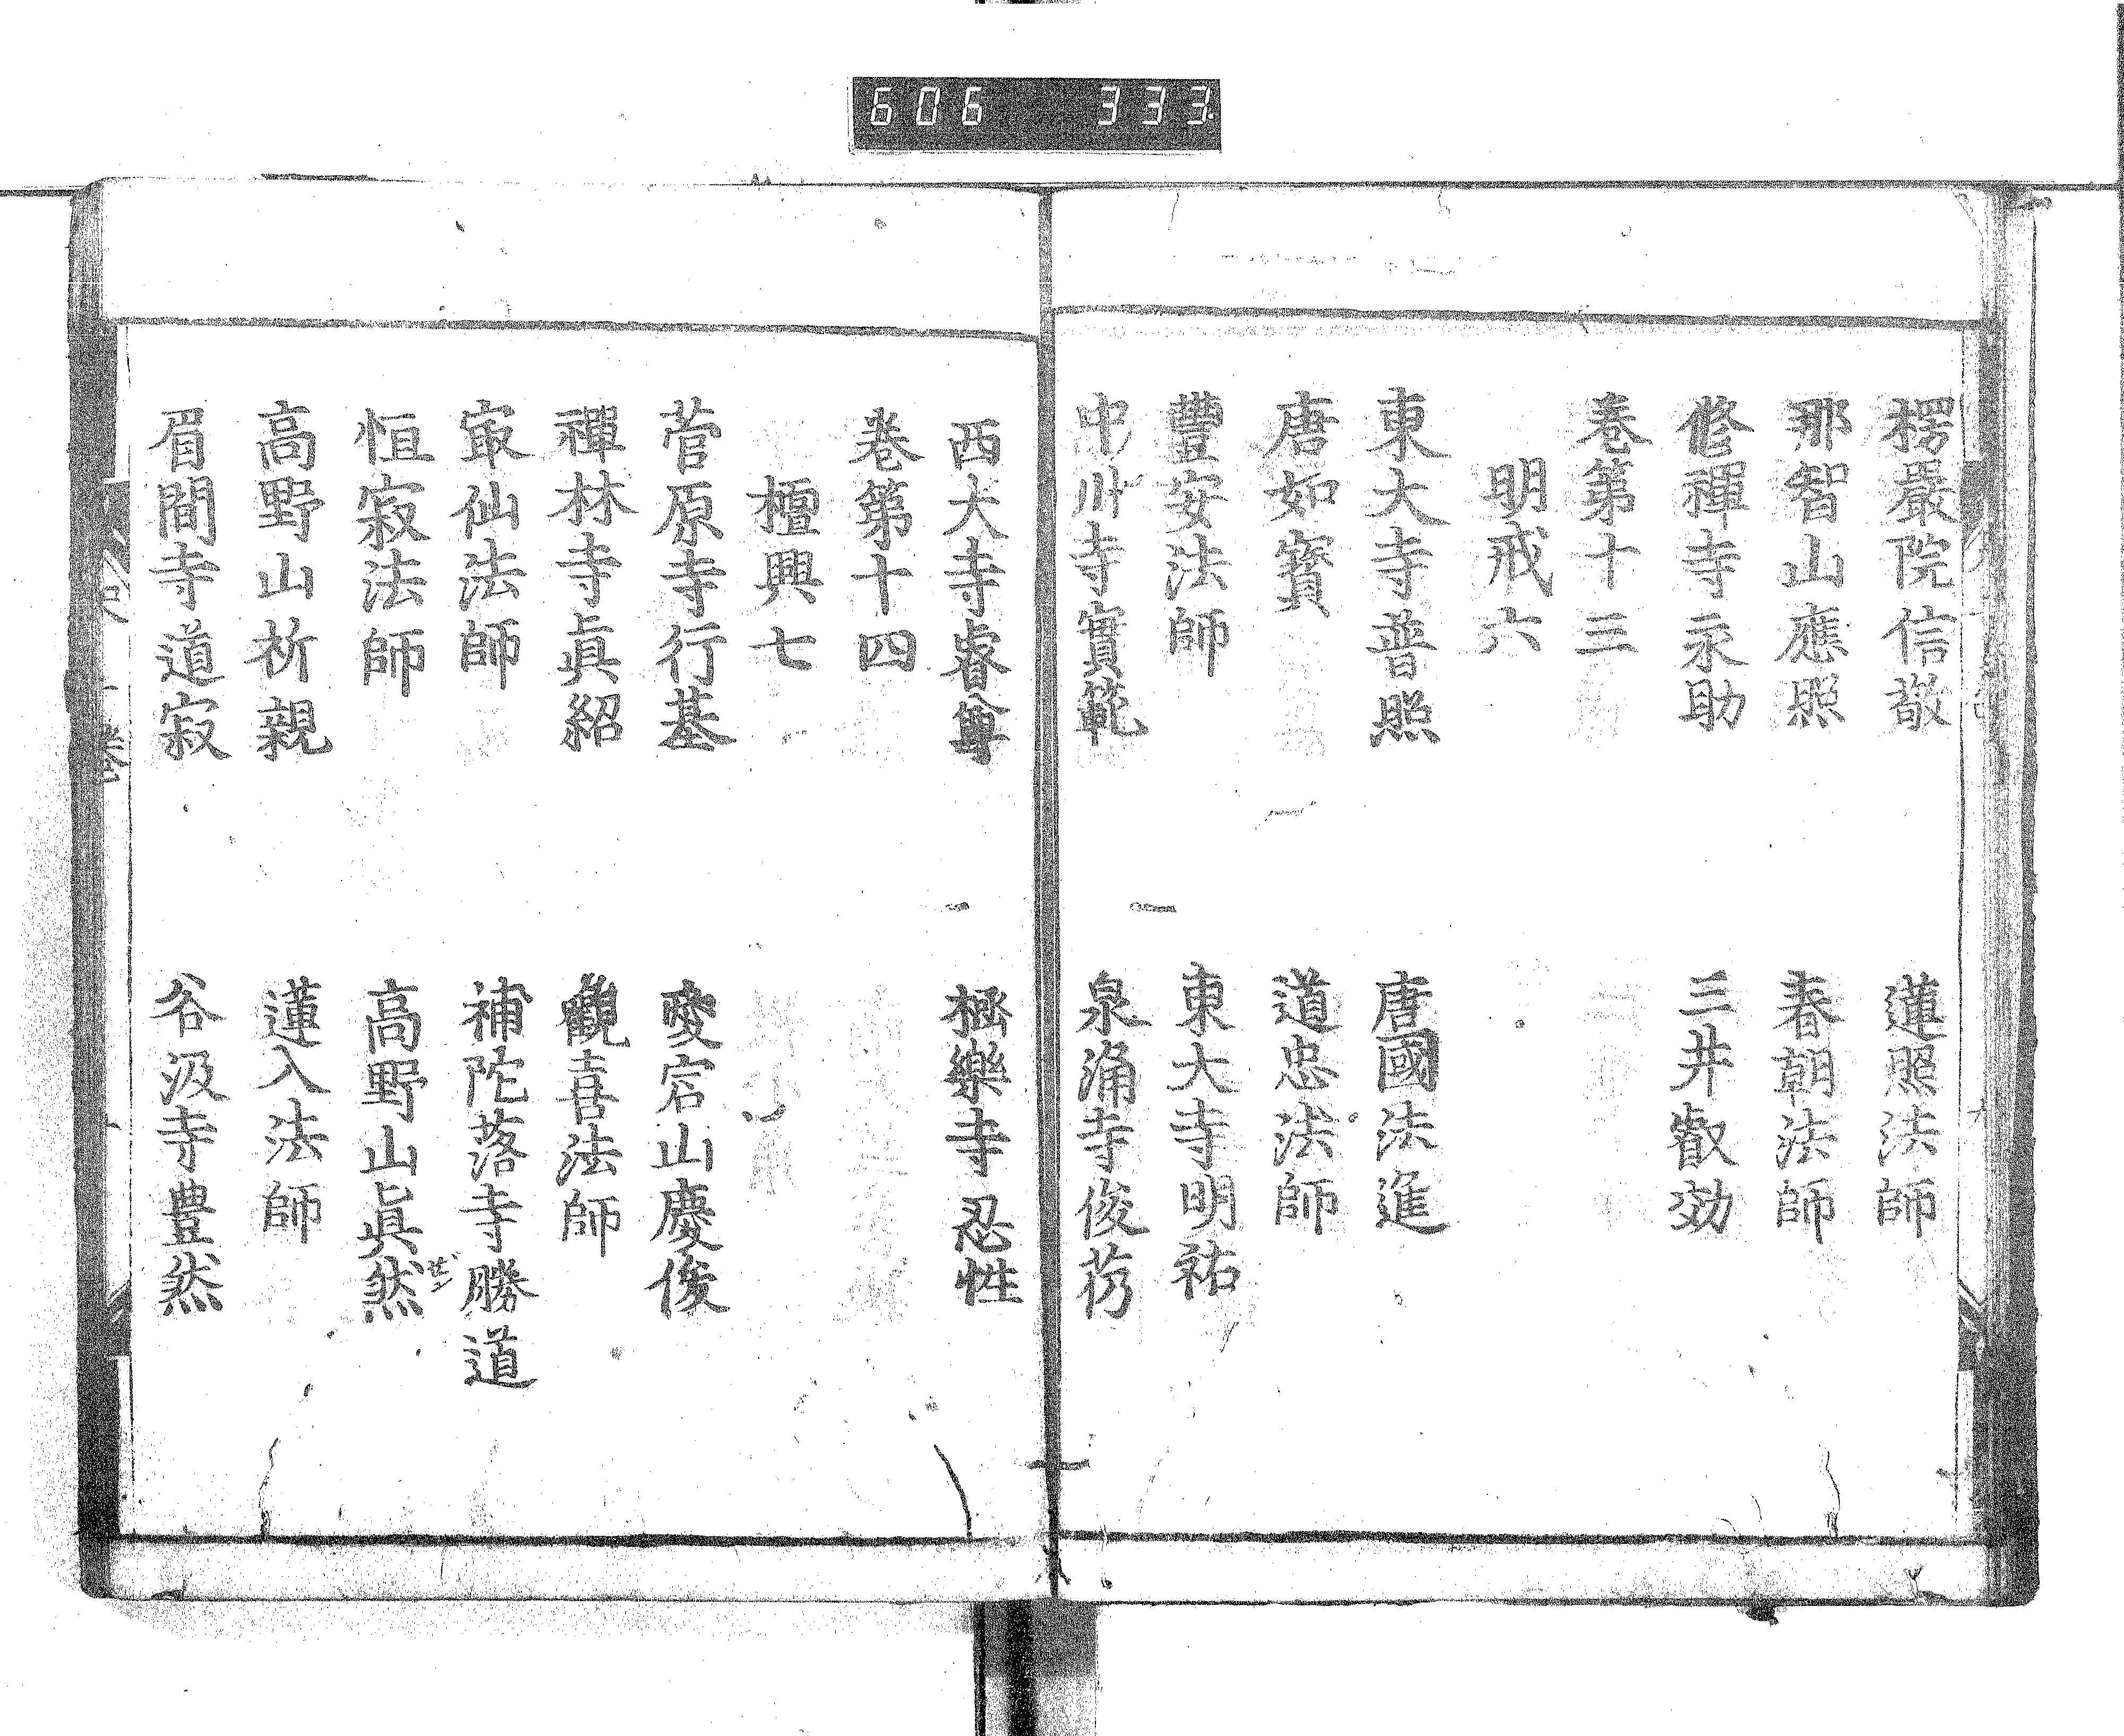 606 333
楞嚴院信敬 蓮照法師
那智山應照 春朝法師
修禪寺永助 三井叡効
卷第十三
明戒六
東大寺普照 唐國法進
唐如寶 道忠法師
豐安法師 東大寺明祐
中川寺實範 泉涌寺俊芿
西大寺睿尊 極樂寺忍性
卷第十四
檀興七
菅原寺行基 愛宕山慶俊
禪林寺眞紹 觀喜法師
㝡仙法師 補陀落寺勝道
恒寂法師 高野山眞然
高野山祈親 蓮入法師
眉間寺道寂 谷汲寺豊然